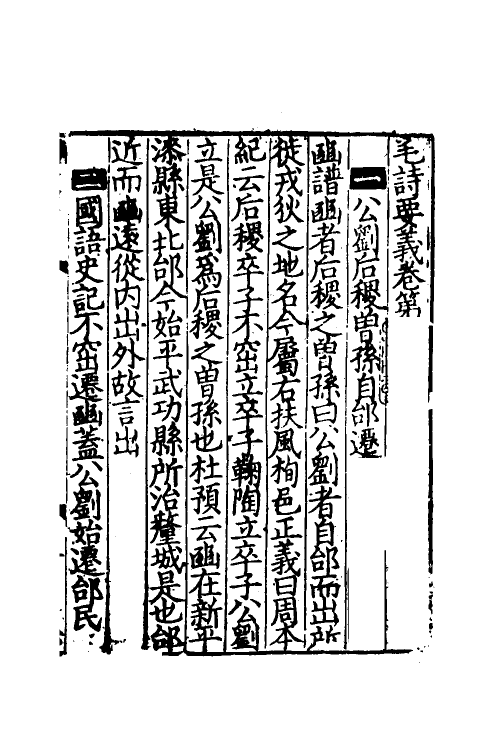 毛詩要義卷第
一 公劉后稷曽孫自邰遷
豳譜豳者后稷之曽孫曰公劉者自邰而出所
徙戎狄之地名今屬右扶風栒邑正義曰周本
紀云后稷卒子不窋立卒子鞠陶立卒子公劉
立是公劉爲后稷之曽孫也杜預云豳在新平
漆縣東北邰今始平武功縣所治釐城是也邰
近而豳遠從内出外故言出
二 國語史記不窋遷豳蓋公劉始遷邰民